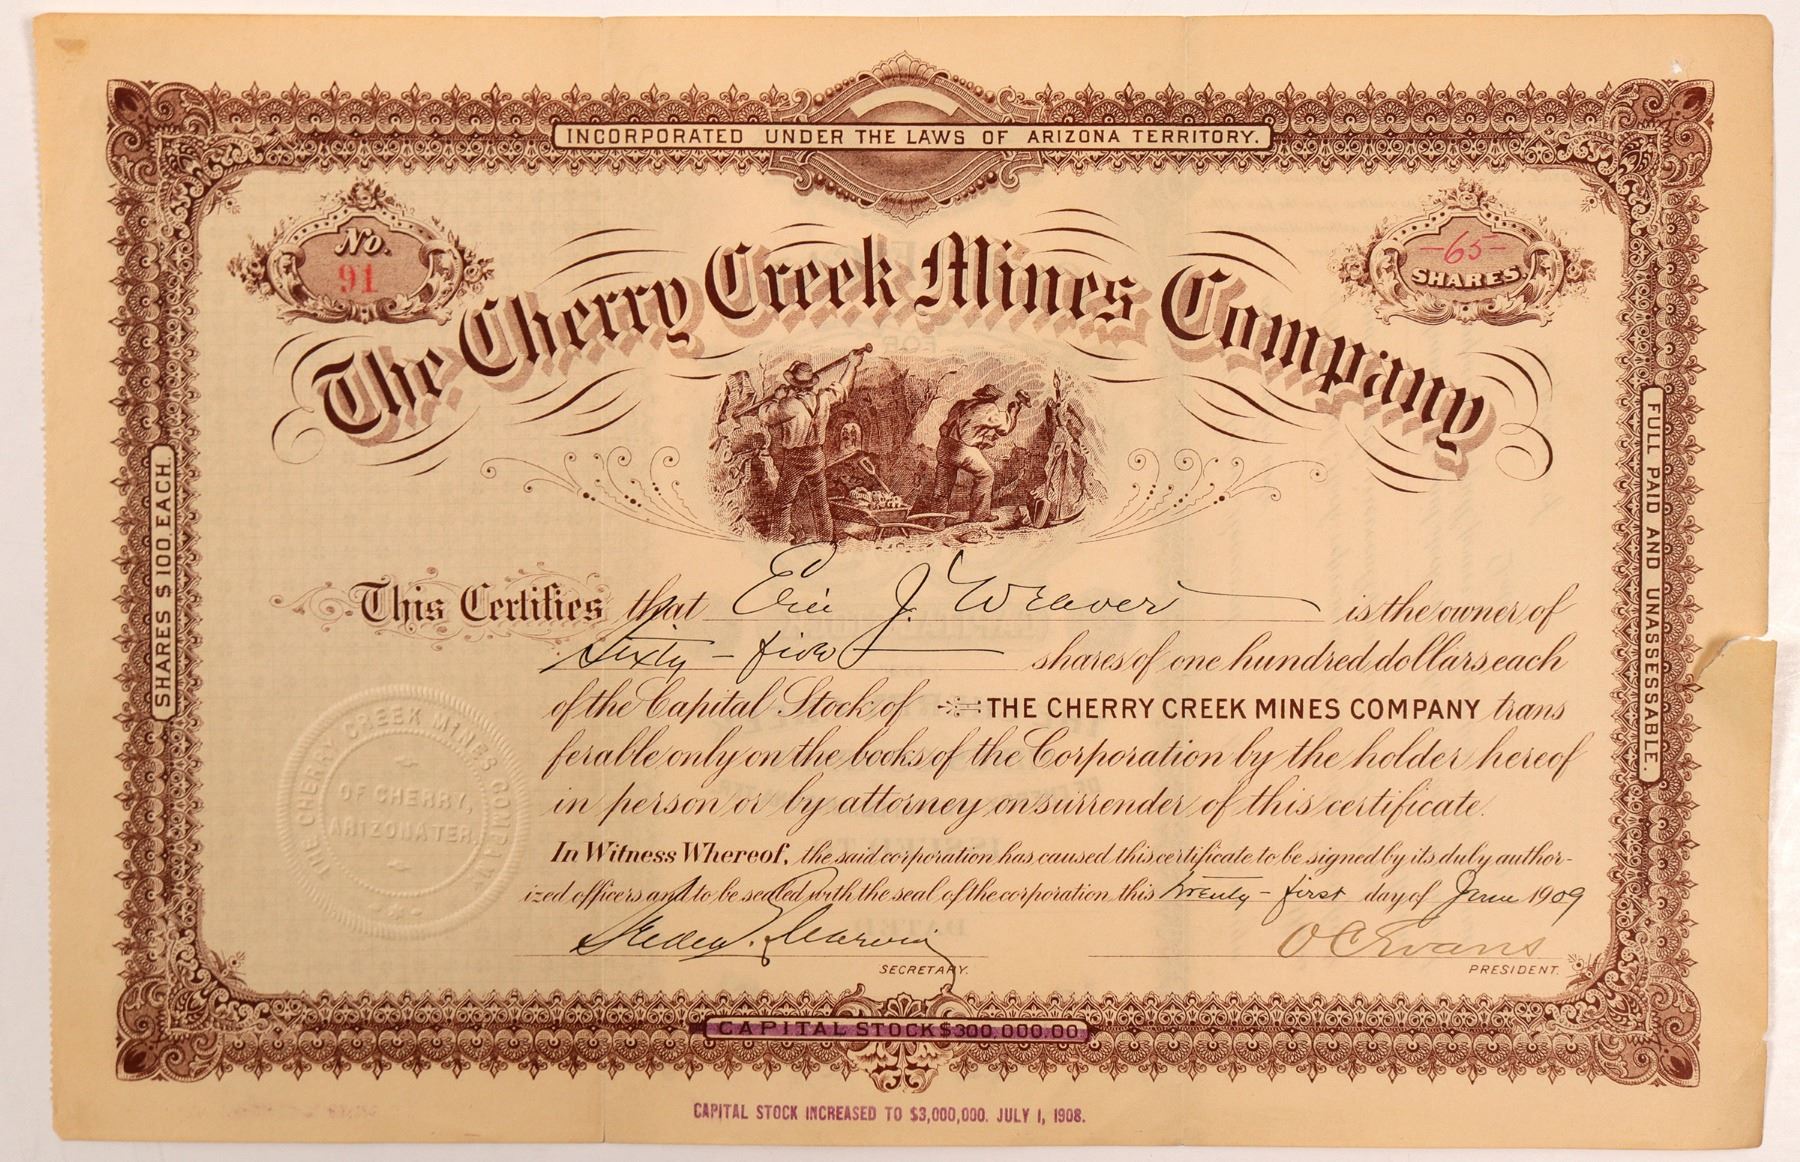 INCORPORATED UNDER THE LAWS OF ARIZONA TERRITORY.
No.
91
-65-
SHARES.
The Cherry Creek Mines Company
SHARES $100. EACH.
FULL PAID AND UNASSESSABLE.
This Certifies that J. Weaver is the owner of
Sixty-five shares of one hundred dollars each
of the Capital Stock of THE CHERRY CREEK MINES COMPANY trans
ferable only on the books of the Corporation by the holder hereof
in person or by attorney on surrender of this certificate.
In Witness Whereof, the said corporation has caused this certificate to be signed by its duly author-
ized officers and to be sealed with the seal of the corporation this twenty-first day of June 1909
O C Evans
SECRETARY.
PRESIDENT.
THE CHERRY CREEK MINES COMPANY
OF CHERRY,
ARIZONA TER.
CAPITAL STOCK $300,000.00
CAPITAL STOCK INCREASED TO $3,000,000. JULY 1, 1908.